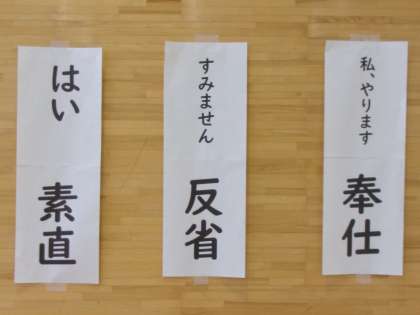 はい 素直
すみません 反省
私、やります 奉仕